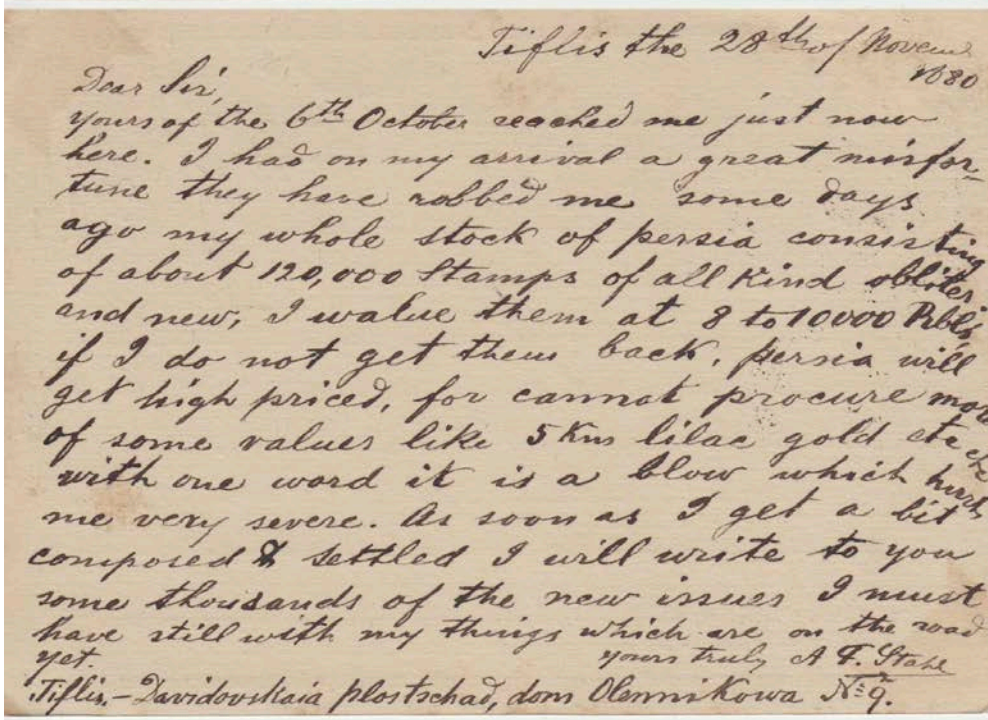 Tiflis the 28th of Novem
1880
Dear Sir,
yours of the 6th October reached me just now
here. I had on my arrival a great misfor-
tune they have robbed me some days
ago my whole stock of persia consisting
of about 120,000 Stamps of all Kind obliter.
and new, I walue them at 8 to 10000 Rbls,
if I do not get them back, persia will
get high priced, for cannot procure more
of some values like 5 Krs lilac gold etc etc
with one word it is a blow which hurts
me very severe. As soon as I get a bit
composed & settled I will write to you
some thousands of the new issues I must
have still with my things which are on the road
yet. yours truly A F. Stahl
Tiflis.- Davidovskaia plostschad, dom Olennikowa No 9.